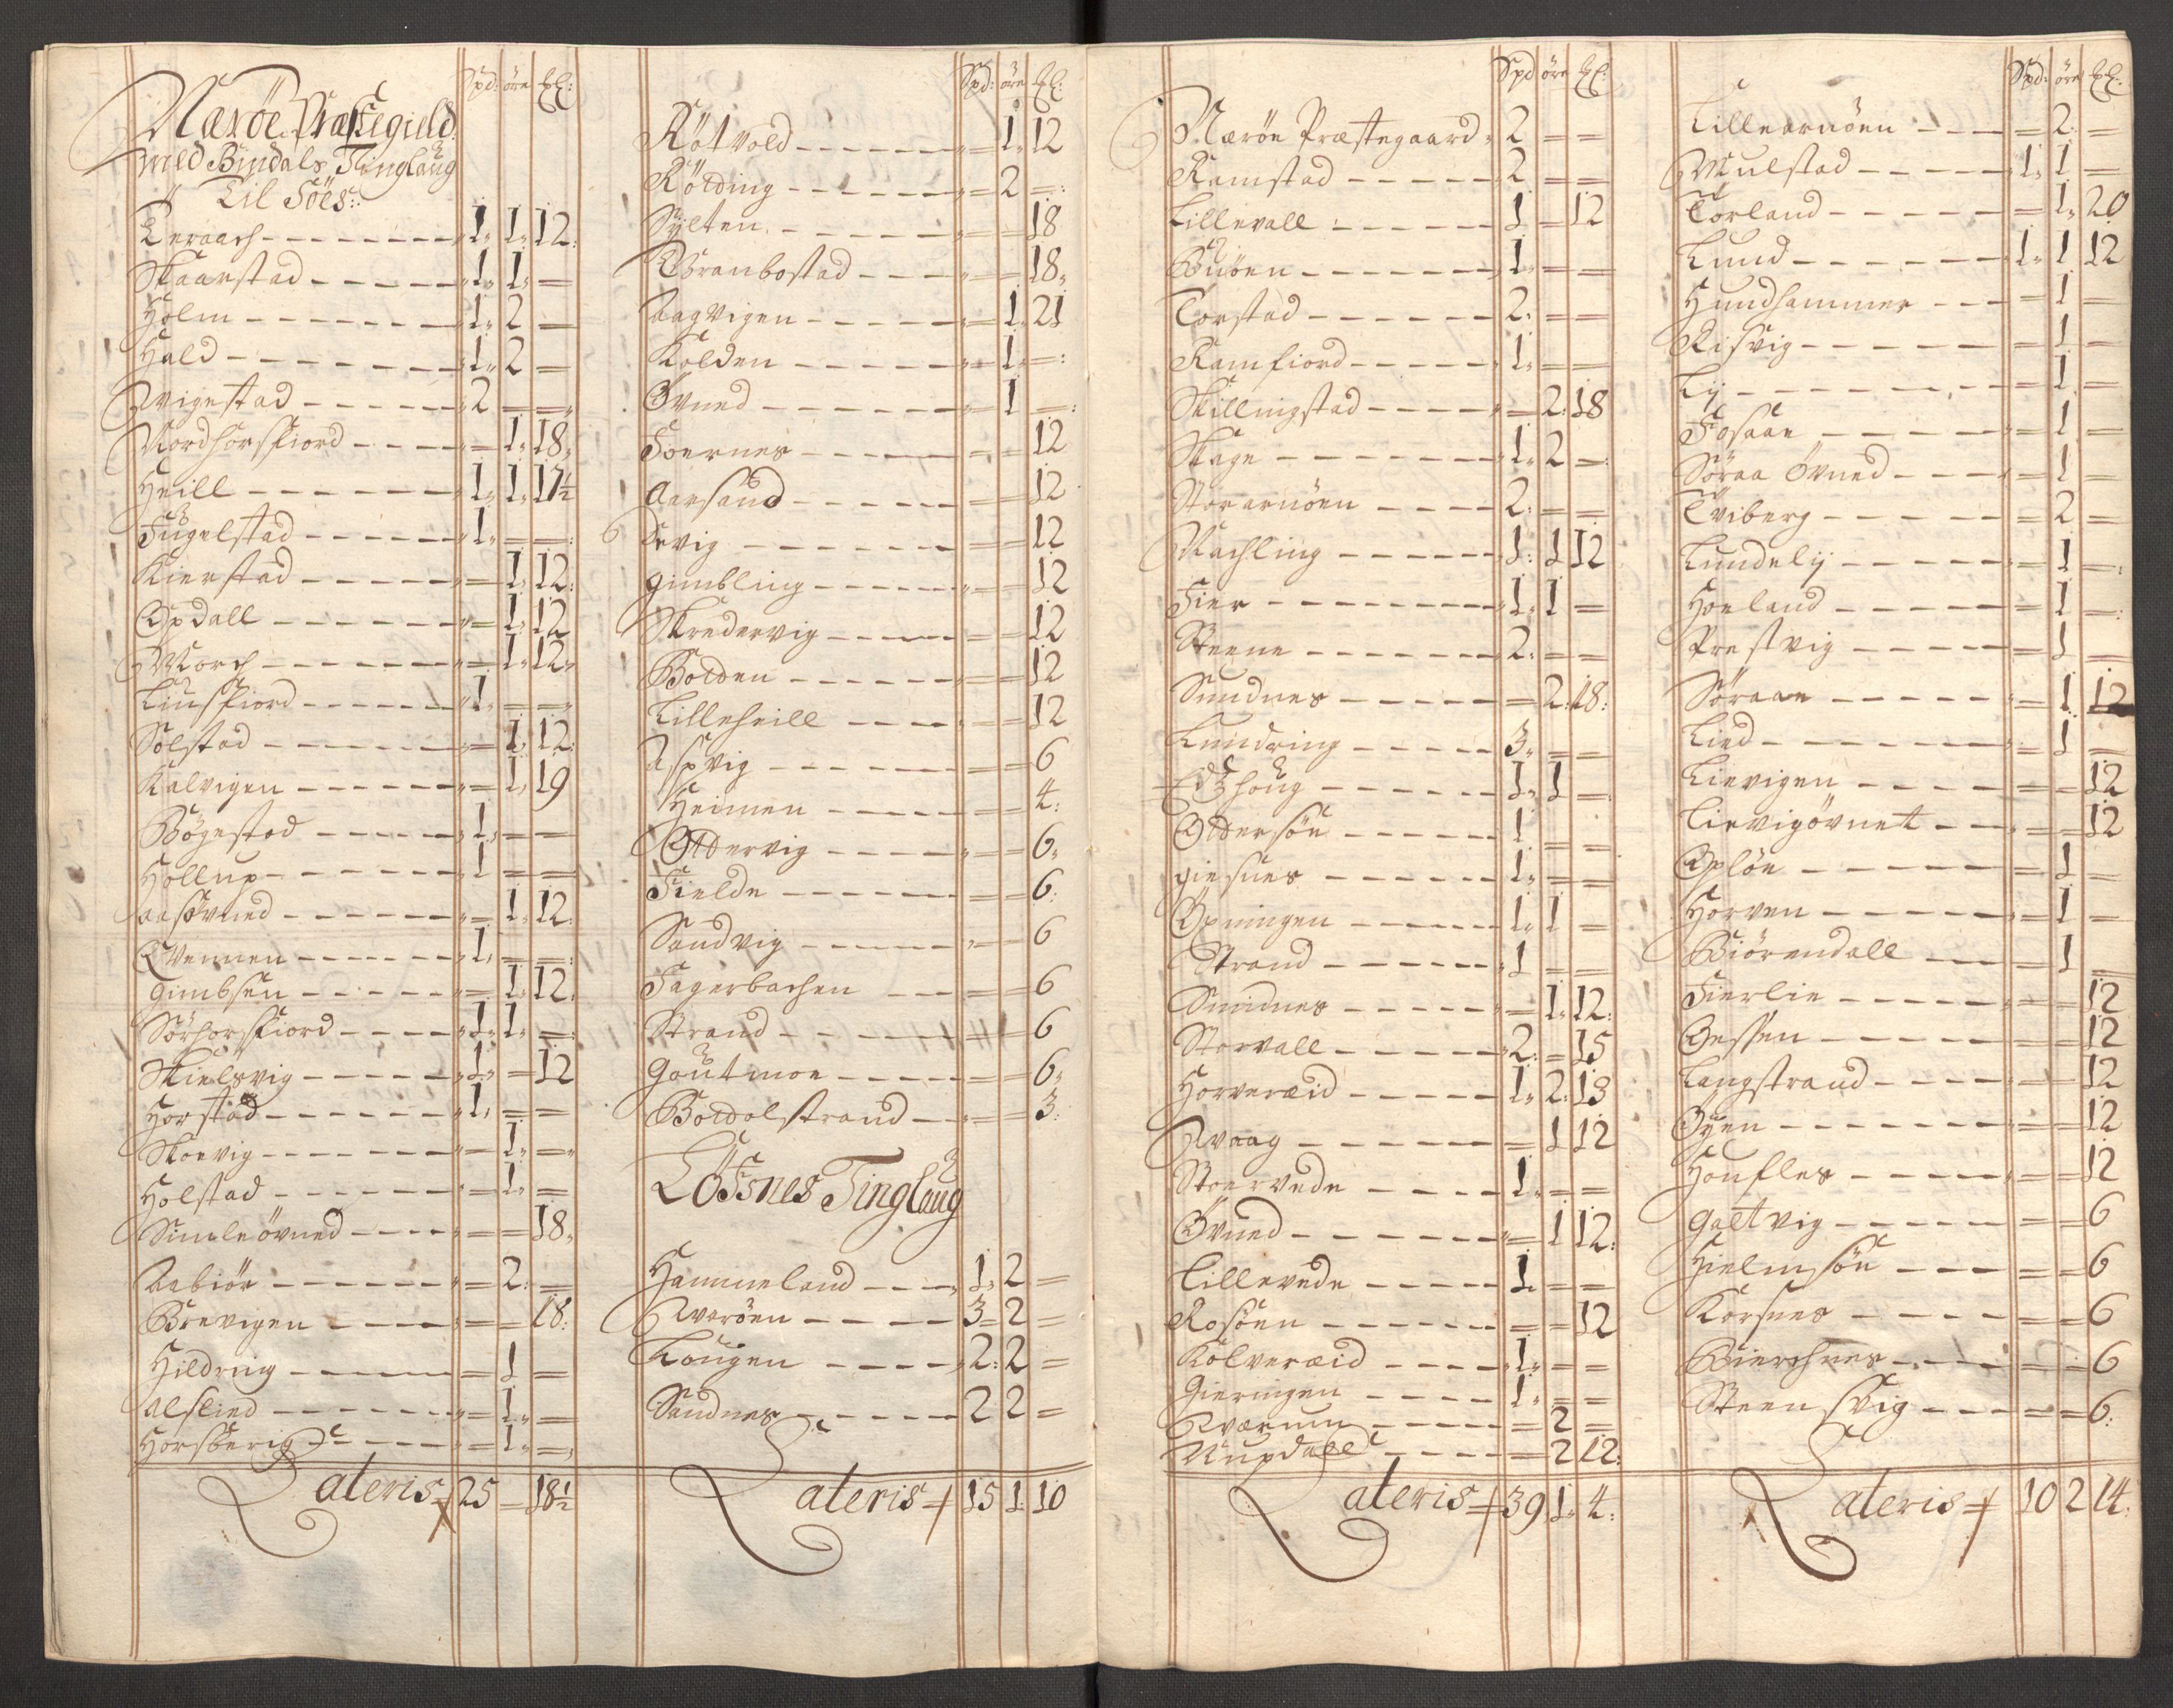 Spd: öre ℔:
Næröe Præstegield
med Bindals Tinglaug
Til Söes:
Terraach 1 1 12
Skaarstad 1 1 =
Holm 1 2 =
Hald 1 2 =
Avigestad 2 = =
Nordhorsfiord = 1 18
Heill 1 1 17½
Fugelstad 1 = =
Kierstad = 1 12
Opdall = 1 12
Morch = 1 12
Liusfiord 1 = =
Solstad = 1 12
Kalvigen = 1 19
Bögestad 1 = =
Hollup 1 = =
Aasövned = 1 12
Qvennen 1 = =
Gimbsen = 1 12
Sörhorsfiord 1 1 =
Skielsvig 1 = 12
Horstad 1 = =
Skorvig = 1 =
Holstad = 1 =
Simleövned = = 18
Aabiör = 2 =
Brevigen = = 18
Hildring = 1 =
Alslied = 1 =
Horsberig = 1 =
Lateris 25 = 18½
Spd: öre ℔:
Rötvold = 1 12
Rölding = 2 =
Sylten = = 18
Branbostad = = 18
Aagvigen = 1 21
Kolden = 1 =
Övned = 1 =
Foernes = = 12
Aarsand = = 12
Devig = = 12
Gimbling = = 12
Skredervig = = 12
Bolden = = 12
Lilleheill = = 12
Aspvig = = 6
Heimen = = 4
Oldervig = = 6
Fielde = = 6
Sandvig = = 6
Fagerbachen = = 6
Strand = = 6
Goutmoe = = 6
Boldalstrand = = 3
Löfsnes Tinglaug
Hammeland 1 2 =
Avaröen 3 2 =
Lougen 2 2 =
Sandnes 2 2 =
Lateris 15 1 10
Spd öre ℔:
Næröe Præstegaard 2 = =
Ramstad 2 = =
Lillevall 1 = 12
Buöen 1 = =
Torstad 2 = =
Ramfiord 1 = =
Skillingstad = 2 18
Skage 1 2 =
Storarnöen 2 = =
Machling 1 1 12
Fier 1 1 =
Steene 2 = =
Sundnes = 2 18
Lundring 3 = =
Edshoug 1 1 =
Oldersöe 1 = =
Giesnes 1 = =
Opningen 1 1 =
Strand 1 = =
Smidnes = 1 12
Storvall 2 = 15
Horveræid 1 2 13
Avaag = 1 12
Storvede 1 = =
Övned = 1 12
Lillevede 1 = =
Rosöen = = 12
Kolveræid 1 = =
Gieringen 1 = =
Qværum = 2 =
Nupdall = 2 12
Lateris 39 1 4
Spd: öre ℔:
Lillearnöen = 2 =
Mulstad 1 1 =
Torland = 1 20
Lund 1 1 12
Hundhammer = 1 =
Risvig = 1 =
Lÿ = 1 =
Fosaae = 1 =
Söraa Övned = 1 =
Tviberg = 2 =
Lundelÿ = 1 =
Hoeland = 1 =
Prestvig = 1 =
Söraae = 1 12
Lied = 1 =
Lievigen = = 12
Lievigövnet = = 12
Oplöe = 1 =
Horven = 1 =
Biörendall = 1 =
Fierlie = = 12
Gessen = = 12
Langstrand = = 12
Öyen = = 12
Houfles = = 12
Galtvig = = 6
Hielmsöe = = 6
Korsnes = = 6
Bierchnes = = 6
Steensvig = = 6
Lateris 10 2 14